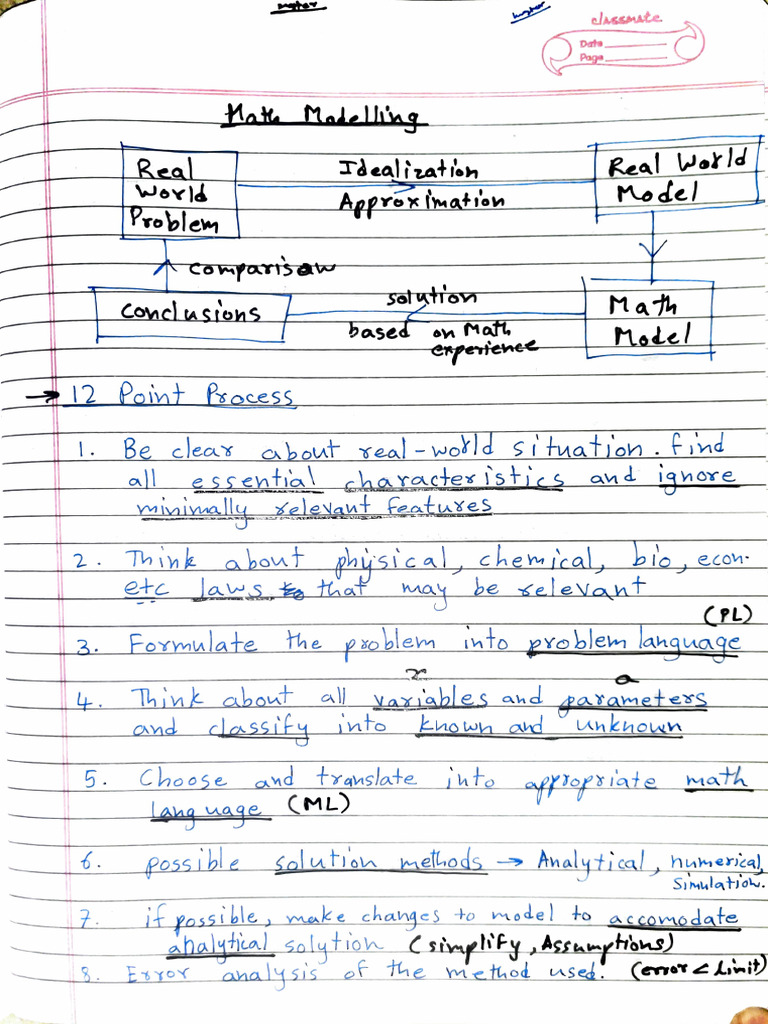 classmate
Date
Page
Math Modelling
Real World Problem
Idealization
Approximation
Real World Model
comparison
Conclusions
solution
based on Math experience
Math Model
→ 12 Point Process
1. Be clear about real-world situation. find
all essential characteristics and ignore
minimally relevant features
2. Think about physical, chemical, bio, econ.
etc laws that may be relevant
(PL)
3. Formulate the problem into problem language
x a
4. Think about all variables and parameters
and classify into known and unknown
5. Choose and translate into appropriate math
language (ML)
6. possible solution methods → Analytical, numerical,
simulation.
7. if possible, make changes to model to accomodate
analytical solytion (simplify, Assumptions)
8. Error analysis of the method used. (error < limit)